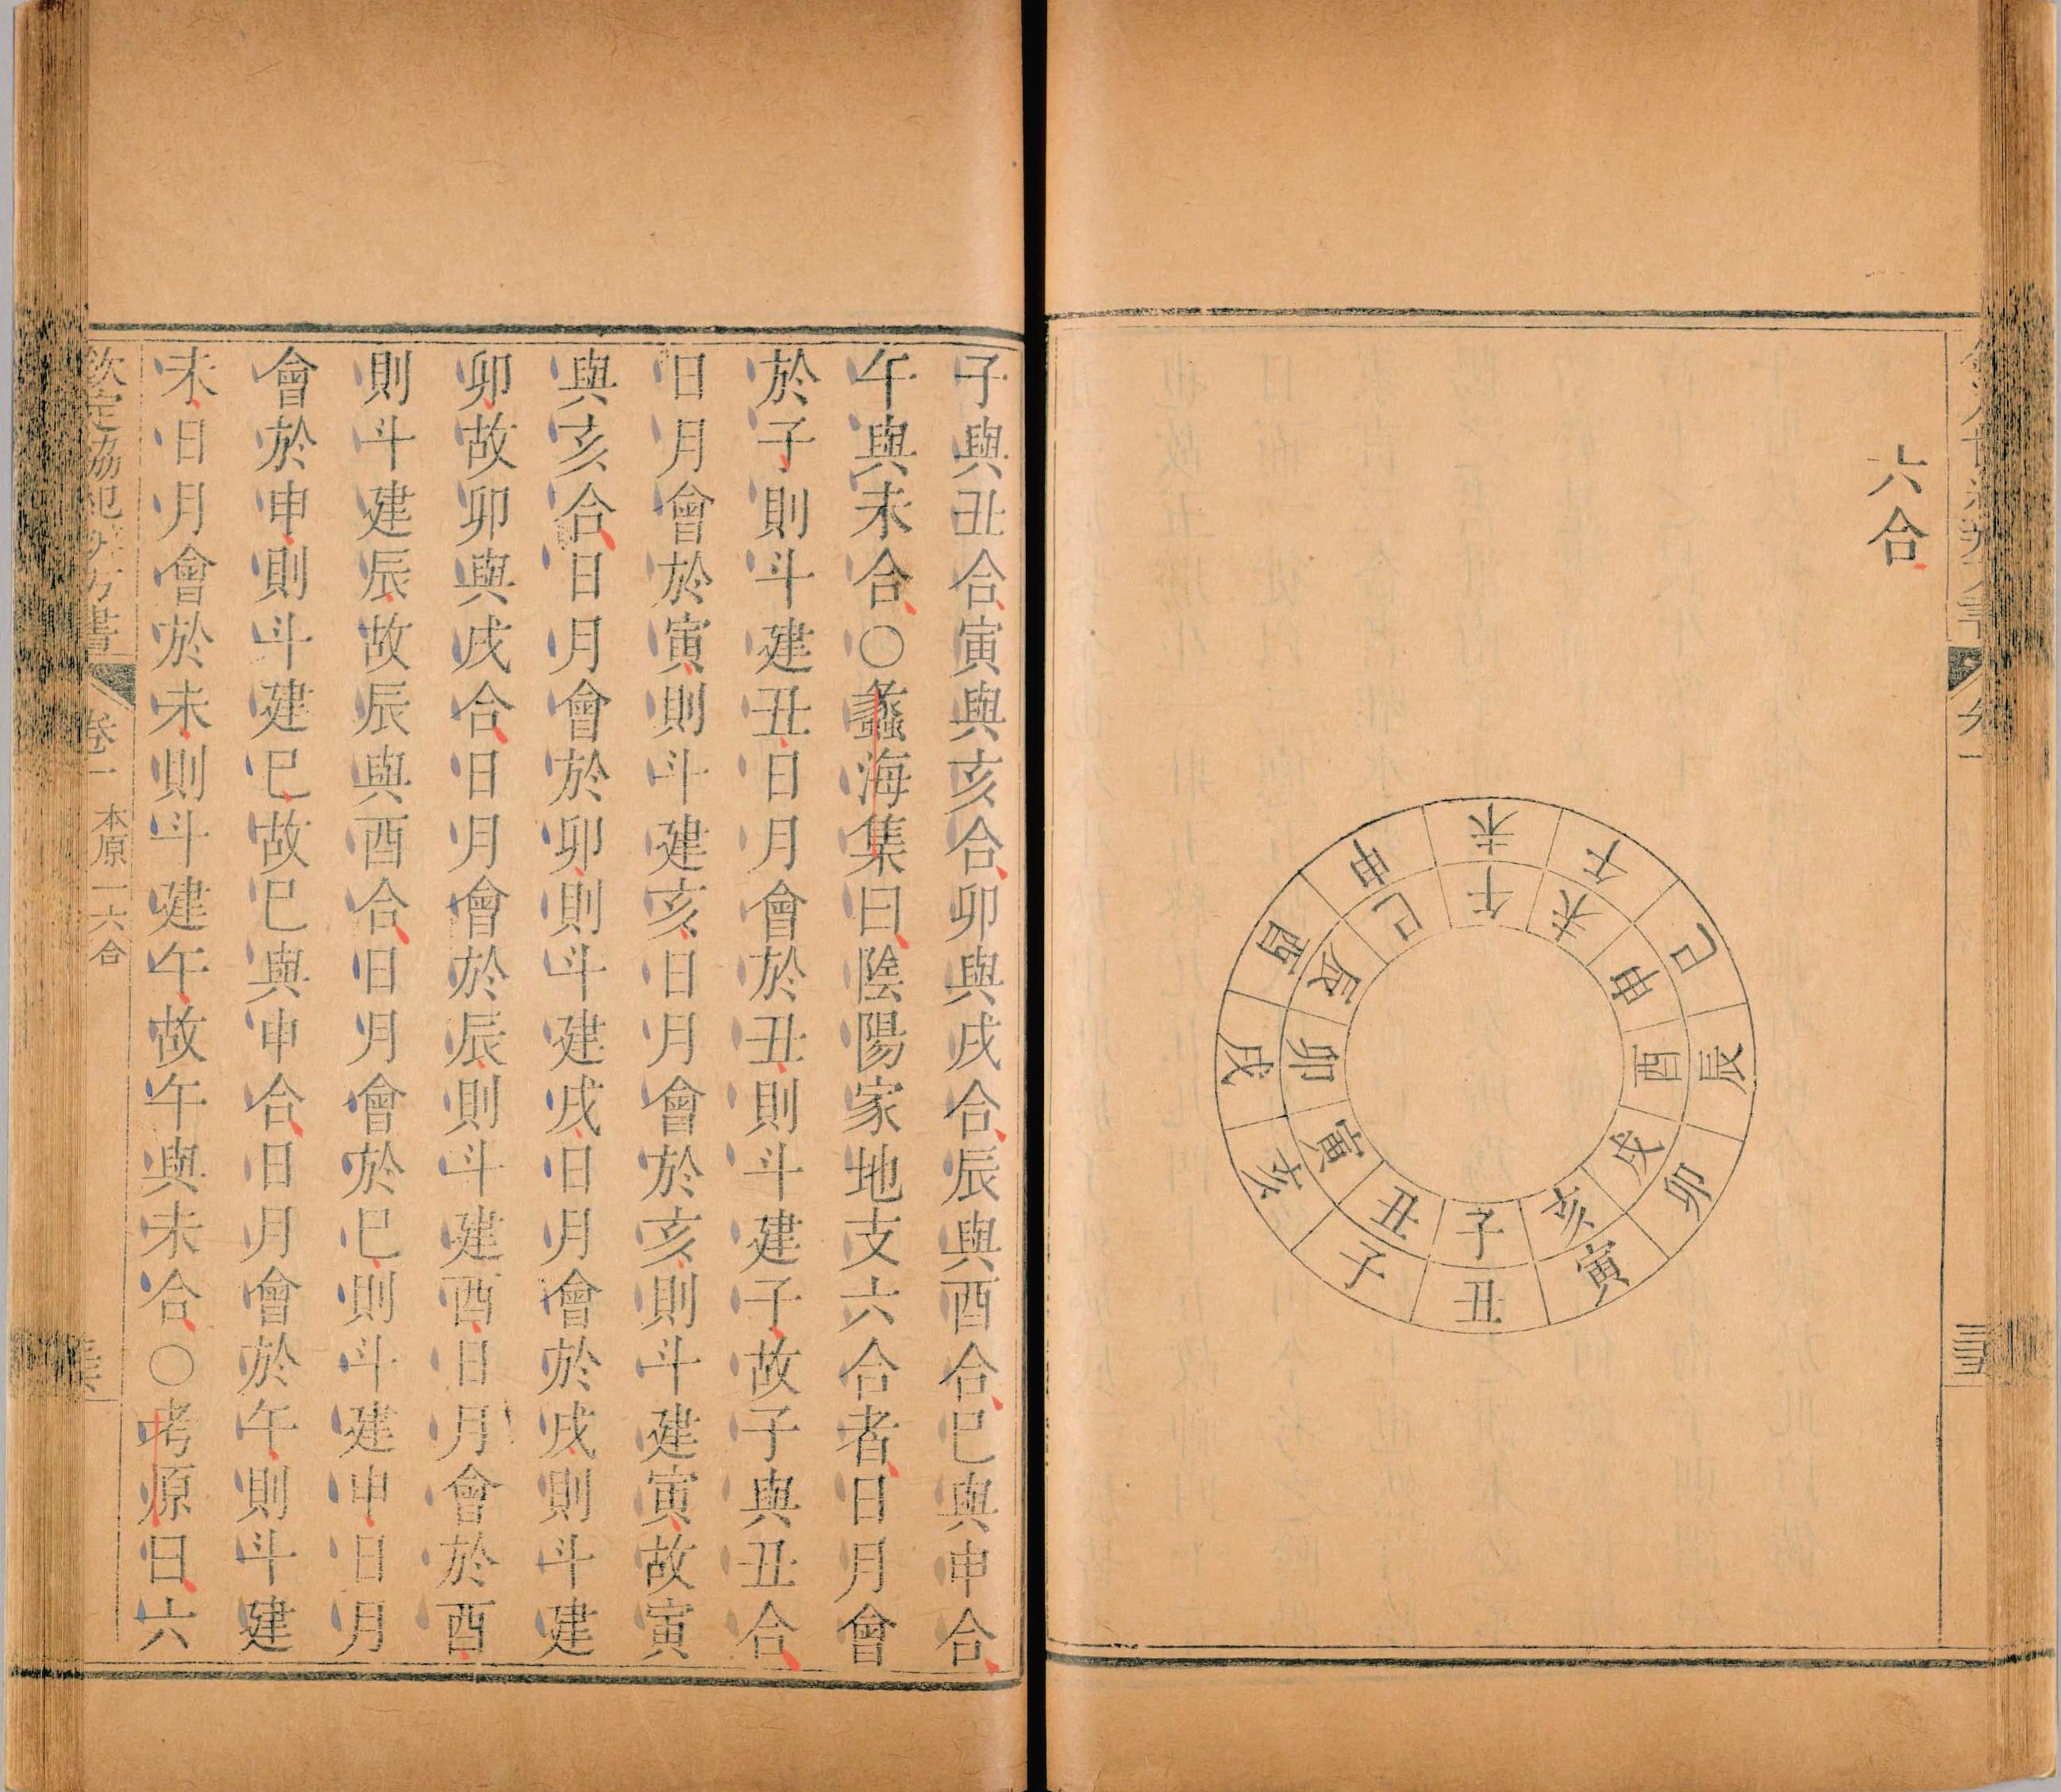 六合
未午巳辰卯寅丑子亥戌酉申
午未申酉戌亥子丑寅卯辰巳
子與丑合寅與亥合卯與戌合辰與酉合巳與申合
午與未合○蠡海集曰陰陽家地支六合者日月會
於子則斗建丑日月會於丑則斗建子故子與丑合
日月會於寅則斗建亥日月會於亥則斗建寅故寅
與亥合日月會於卯則斗建戌日月會於戌則斗建
卯故卯與戌合日月會於辰則斗建酉日月會於酉
則斗建辰故辰與酉合日月會於巳則斗建申日月
會於申則斗建巳故巳與申合日月會於午則斗建
未日月會於未則斗建午故午與未合○考原曰六
欽定協紀辨方書 卷一 本原一六合